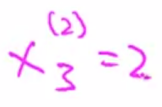 x₃⁽²⁾ = 2.